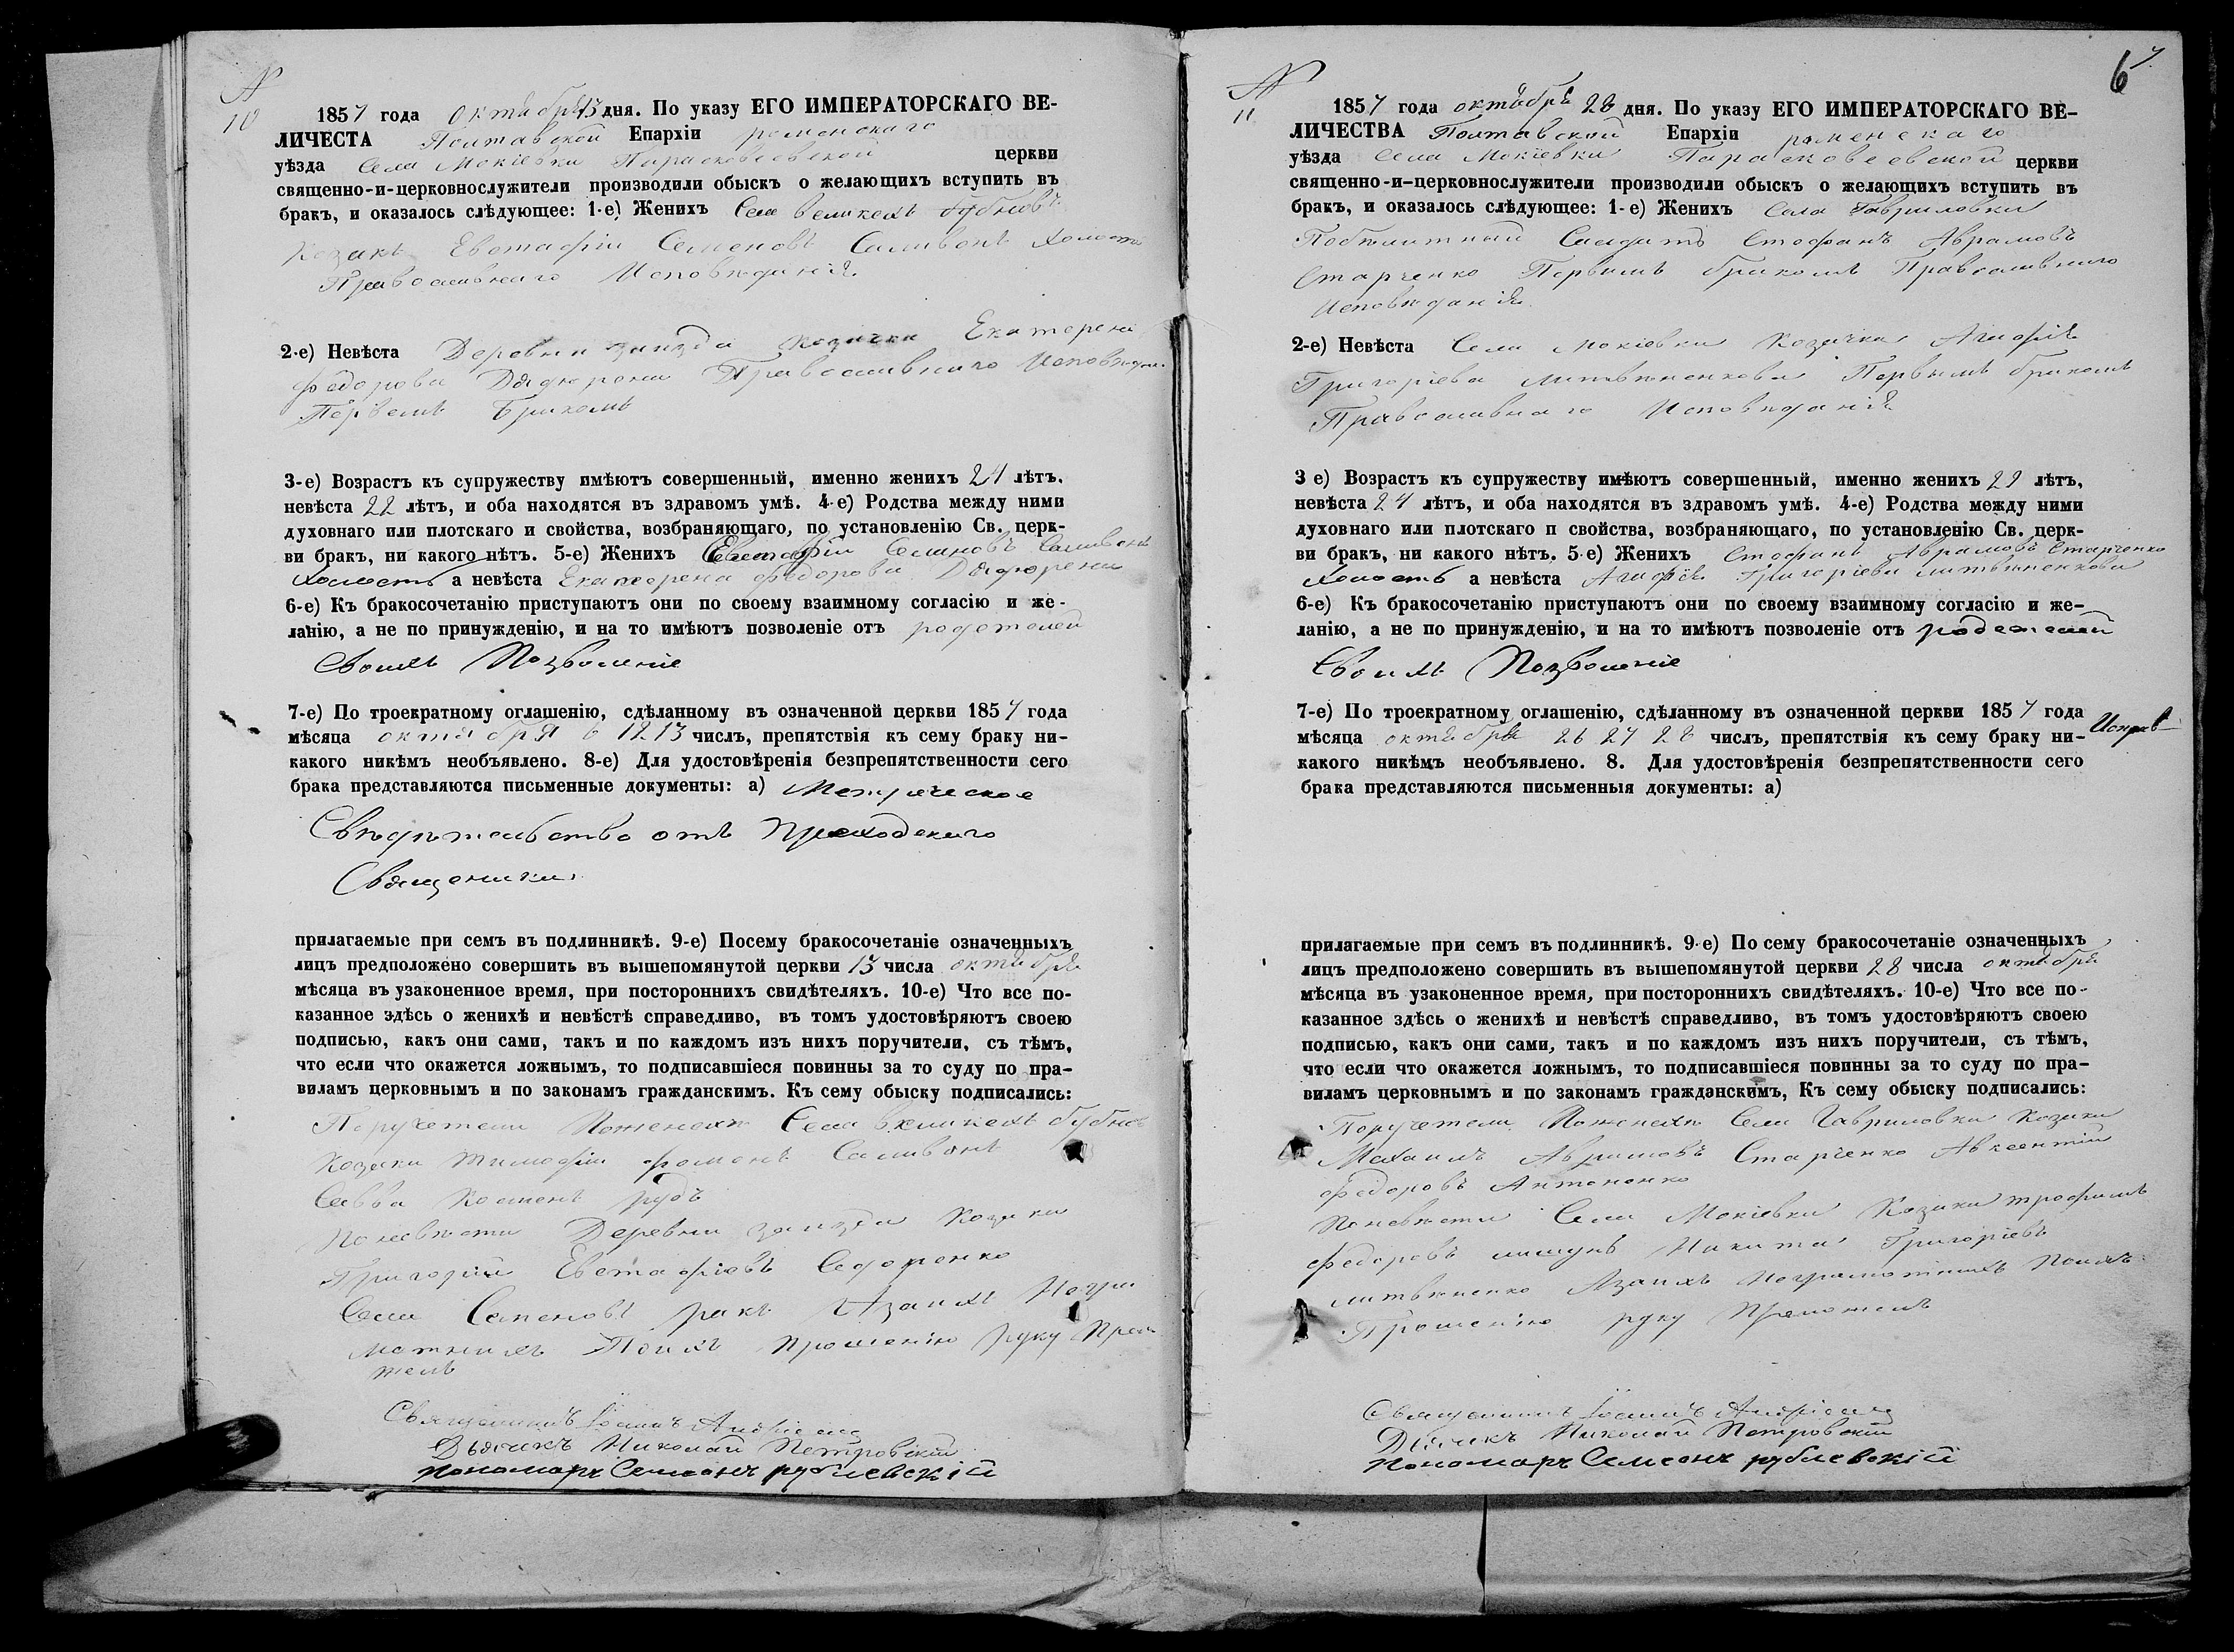 №
10
1857 года октября 13 дня. По указу ЕГО ИМПЕРАТОРСКАГО ВЕ-
ЛИЧЕСТА Полтавской Епархіи роменскаго
уѣзда Села Мокіевки Парасковеевской церкви
священно-и-церковнослужители производили обыскъ о желающихъ вступить въ
бракъ, и оказалось слѣдующее: 1-е) Женихъ Села Великехъ бубновъ
Козакъ Евстафій Семеновъ Саливонъ холостъ
Православнаго Исповѣданія.
2-е) Невѣста Деревни заизда козачка Екатерена
федорова Дядюрена Православнаго Исповѣдан.
Первемъ Бракомъ
3-е) Возрастъ къ супружеству имѣютъ совершенный, именно женихъ 24 лѣтъ.
невѣста 22 лѣтъ, и оба находятся въ здравомъ умѣ. 4-е) Родства между ними
духовнаго или плотскаго и свойства, возбраняющаго, по установленію Св. церк-
ви бракъ, ни какого нѣтъ. 5-е) Женихъ Евстафій Семеновъ Саливонъ
холостъ а невѣста Екатерена федорова Дядюрена
6-е) Къ бракосочетанію приступаютъ они по своему взаимному согласію и же-
ланію, а не по принужденію, и на то имѣютъ позволеніе отъ родетелей
Своихъ Позволеніе
7-е) По троекратному оглашенію, сдѣланному въ означенной церкви 1857 года
мѣсяца октября 6 12 13 числъ, препятствія къ сему браку ни-
какого никѣмъ необъявлено. 8-е) Для удостовѣренія безпрепятственности сего
брака представляются письменные документы: а) Метрическое
Свѣдѣтельство отъ Приходскаго
Священика.
прилагаемые при семъ въ подлинникѣ. 9-е) Посему бракосочетаніе означенныхъ
лицъ предположено совершить въ вышепомянутой церкви 13 числа октября
мѣсяца въ узаконенное время, при постороннихъ свидѣтеляхъ. 10-е) Что все по-
казанное здѣсь о женихѣ и невѣстѣ справедливо, въ томъ удостовѣряютъ своею
подписью, какъ они сами, такъ и по каждомъ изъ нихъ поручители, съ тѣмъ,
что если что окажется ложнымъ, то подписавшіеся повинны за то суду по пра-
виламъ церковнымъ и по законамъ гражданскимъ. Къ сему обыску подписались:
Поручетели Поженехѣ Села великехъ бубнов
Козаки Тимофій Саливонъ
Савва рудъ
Поневѣсти Деревни заизда Козаки
Григорій Евстафіевъ Седоренко
Семеновъ ракъ Азаихъ Негра
мотнихъ Поихъ прошенію руку Прело
желъ
Священникъ Іоаннъ
Дьячикъ Николай Петровскій
пономарь Самсонъ рублевскій
6
№
11
1857 года октября 28 дня. По указу ЕГО ИМПЕРАТОРСКАГО ВЕ-
ЛИЧЕСТВА Полтавской Епархіи роменскаго
уѣзда Села Мокіевки Парасковеевской церкви
священно-и-церковнослужители производили обыскъ о желающихъ вступить въ
бракъ, и оказалось слѣдующее: 1-е) Женихъ Села Гавриловки
Солдатъ Стефанъ Аврамовъ
Старченко Первимъ бракомъ Православнаго
Исповѣданія.
2-е) Невѣста Села Мокіевки Козачка Агафія
Григоріева литвѣненкова Первымъ бракомъ
Православнаго Исповѣданія
3 е) Возрастъ къ супружеству имѣютъ совершенный, именно женихъ 29 лѣтъ,
невѣста 24 лѣтъ, и оба находятся въ здравомъ умѣ. 4-е) Родства между ними
духовнаго или плотскаго п свойства, возбраняющаго, по установленію Св. церк-
ви бракъ, ни какого нѣтъ. 5-е) Женихъ Стефанъ Аврамовъ Старченко
холостъ а невѣста Агафія Григоріева литвѣненкова
6-е) Къ бракосочетанію приступаютъ они по своему взаимному согласію и же-
ланію, а не по принужденію, и на то имѣютъ позволеніе отъ родетелей
Своихъ Позволеніе
7-е) По троекратному оглашенію, сдѣланному въ означенной церкви 1857 года
мѣсяца октября 26 27 28 числъ, препятствія къ сему браку ни-
какого никѣмъ необъявлено. 8. Для удостовѣренія безпрепятственности сего
брака представляются письменныя документы: а)
прилагаемые при семъ въ подлинникѣ. 9-е) По сему бракосочетаніе означенныхъ
лицъ предположено совершить въ вышепомянутой церкви 28 числа октября
мѣсяца въ узаконенное время, при постороннихъ свидѣтеляхъ. 10-е) Что все по-
казанное здѣсь о женихѣ и невѣстѣ справедливо, въ томъ удостовѣряютъ своею
подписью, какъ они сами, такъ и по каждомъ изъ нихъ поручители, съ тѣмъ,
что если что окажется ложнымъ, то подписавшіеся повинны за то суду по пра-
виламъ церковнымъ и по законамъ гражданскимъ, Къ сему обыску подписались:
Поручетели Поженехѣ Села Гавриловки Козаки
Махаилъ Аврамовъ Старченко Авксентій
федоровъ Антоненко
Поневѣсти Села Мокіевки Козаки трофимъ
федоровъ Никита Григоріевъ
литвѣненко Азаихъ Неграмотнихъ Поихъ
Прошенію руку Преложелъ
Священникъ Іоаннъ
Дьячикъ Николай Петровскій
пономарь Самсонъ рублевскій